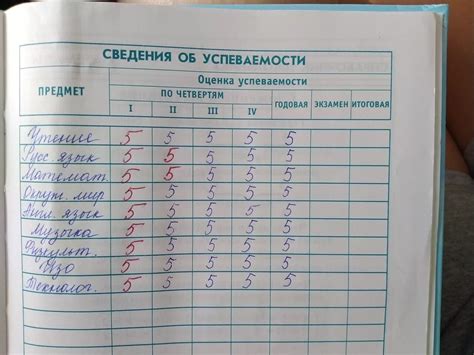 СВЕДЕНИЯ ОБ УСПЕВАЕМОСТИ
ПРЕДМЕТ
Оценка успеваемости
ПО ЧЕТВЕРТЯМ ГОДОВАЯ ЭКЗАМЕН ИТОГОВАЯ
I II III IV
Чтение 5 5 5 5 5
Русс. язык 5 5 5 5 5
Математ. 5 5 5 5 5
Окруж. мир 5 5 5 5 5
Англ. язык 5 5 5 5 5
Музыка 5 5 5 5 5
Физкульт. 5 5 5 5 5
Изо 5 5 5 5 5
Технолог. 5 5 5 5 5